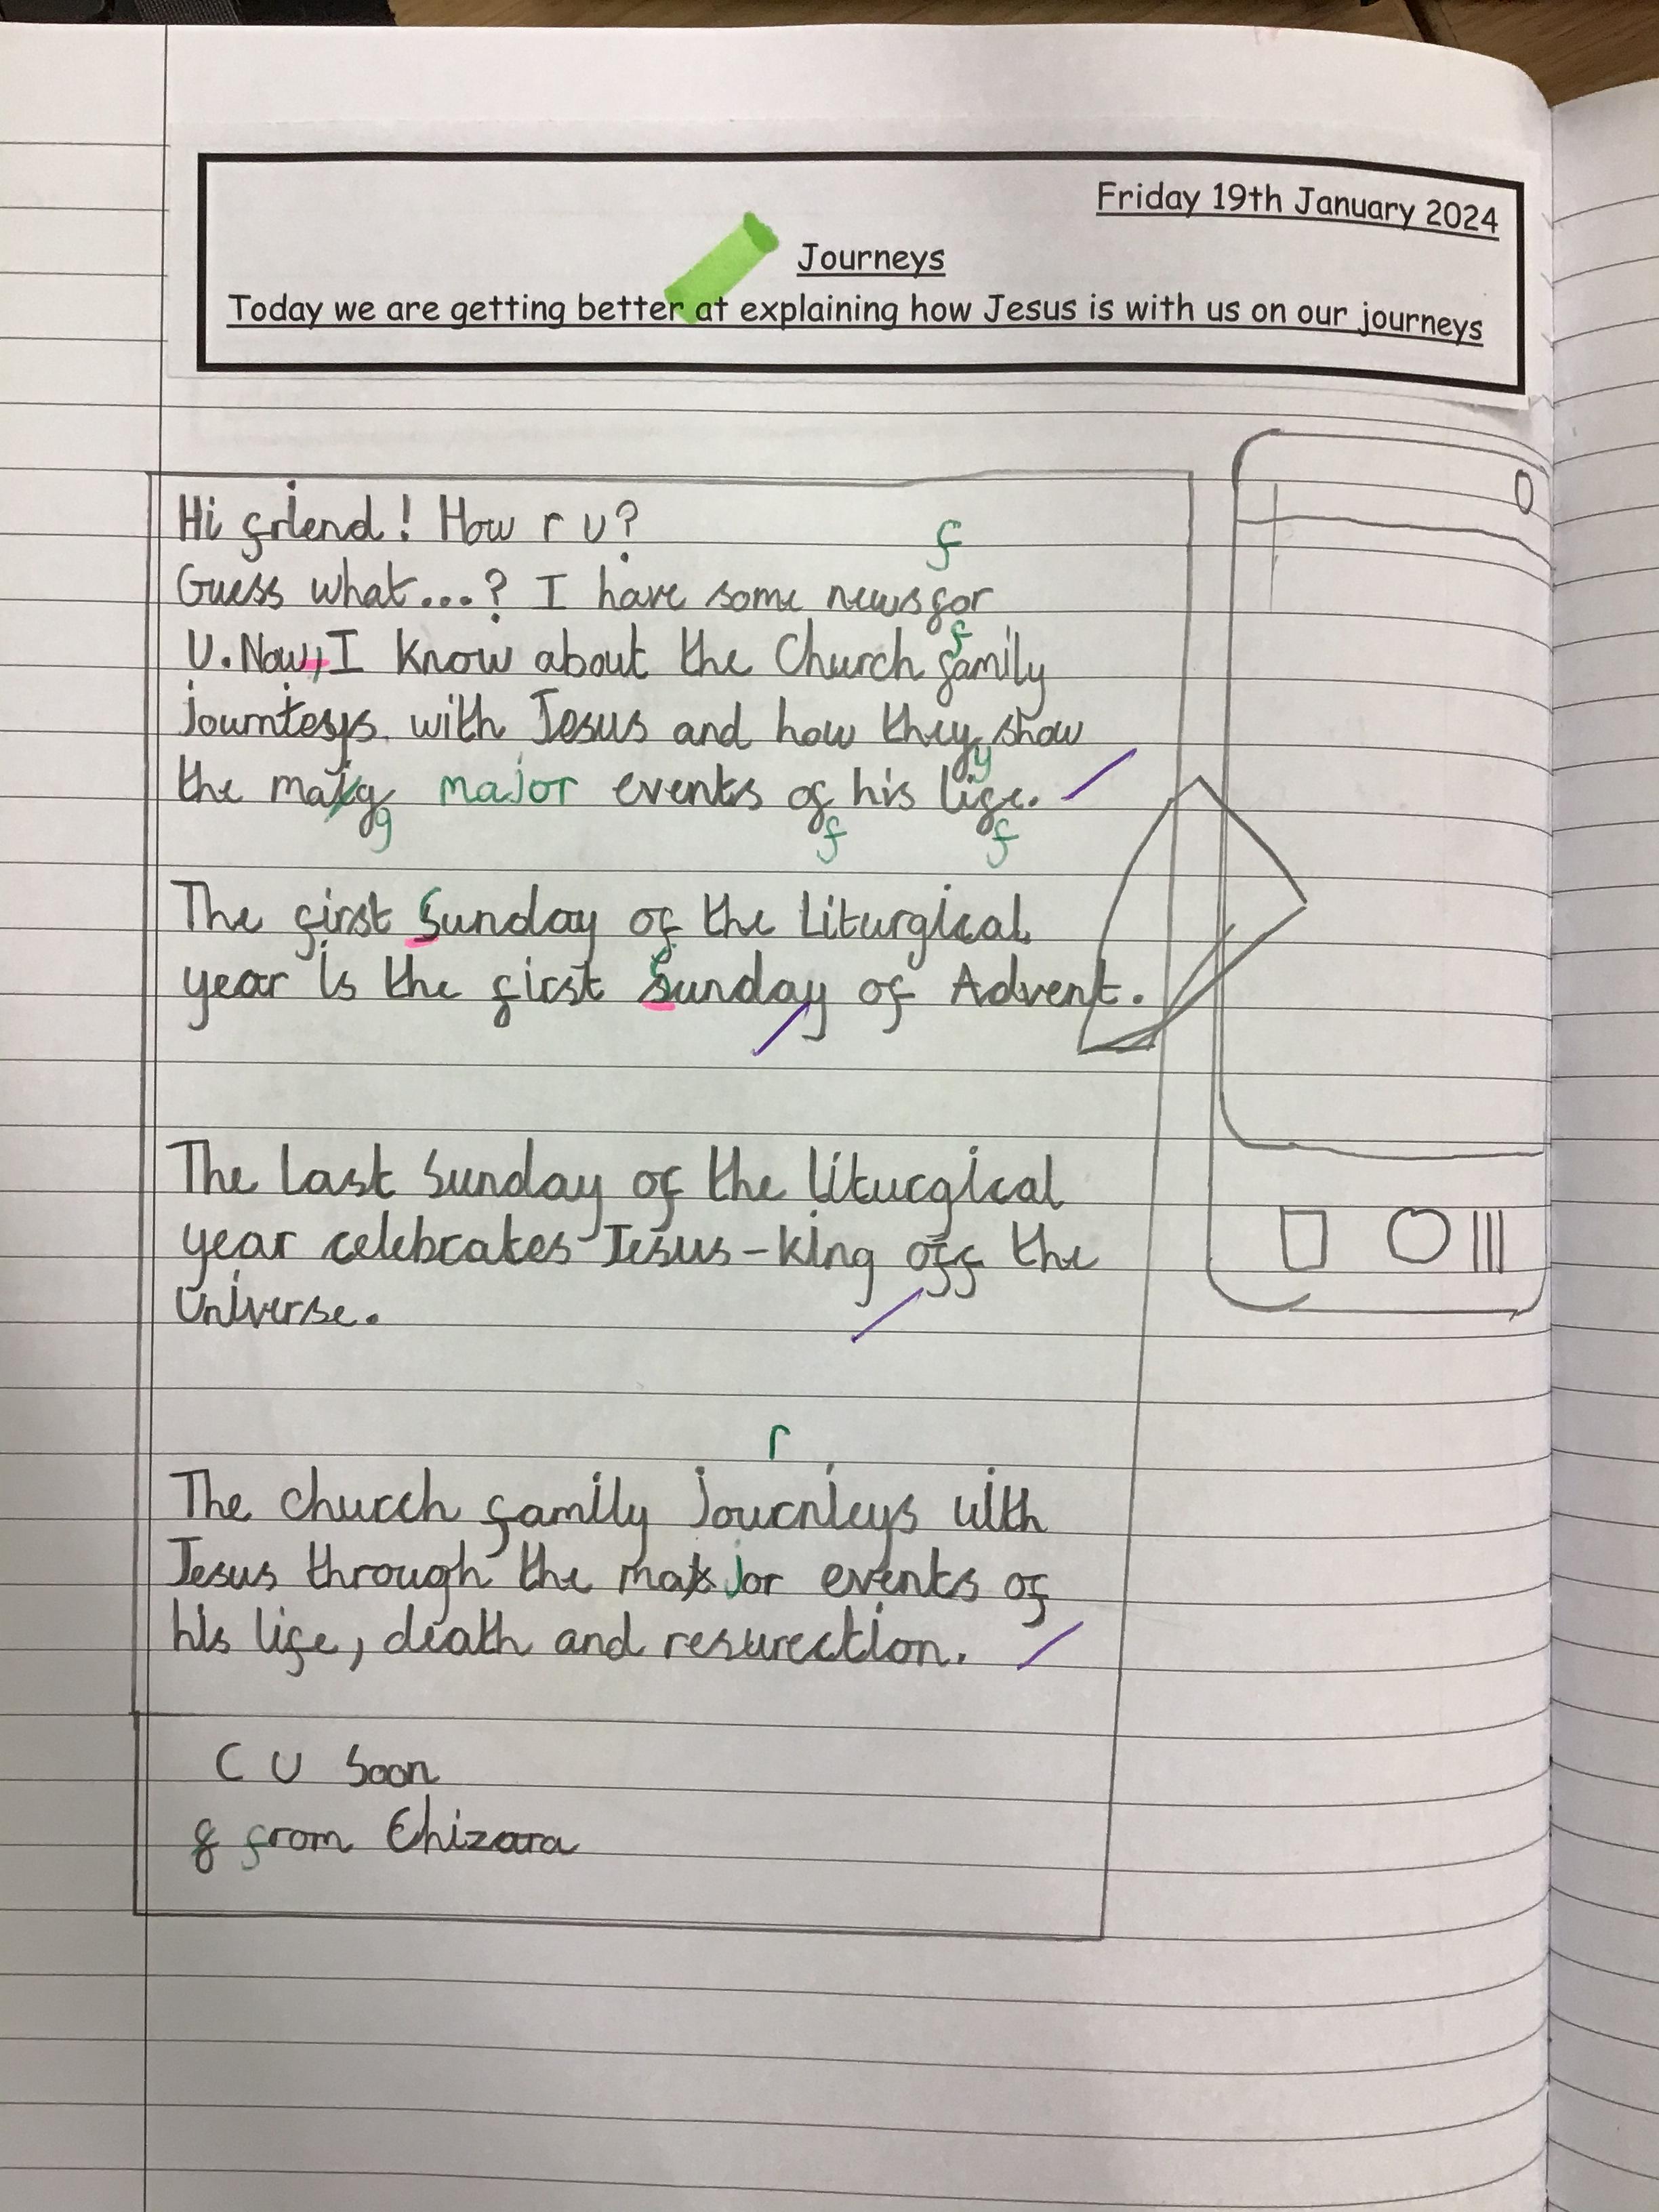 Friday 19th January 2024
Journeys
Today we are getting better at explaining how Jesus is with us on our journeys
Hi friend! How r U?
f
Guess what...? I have some news for
f
U. Now, I know about the Church family
journteys with Jesus and how they show
y
the major events of his life.
g f f
The first Sunday of the Liturgical
year is the first Sunday of Advent.
The Last Sunday of the liturgical
year celebrates Jesus-king off the
Universe.
r
The church family journieys with
Jesus through the major events of
his life, death and resurection.
C U Soon
from Chizara